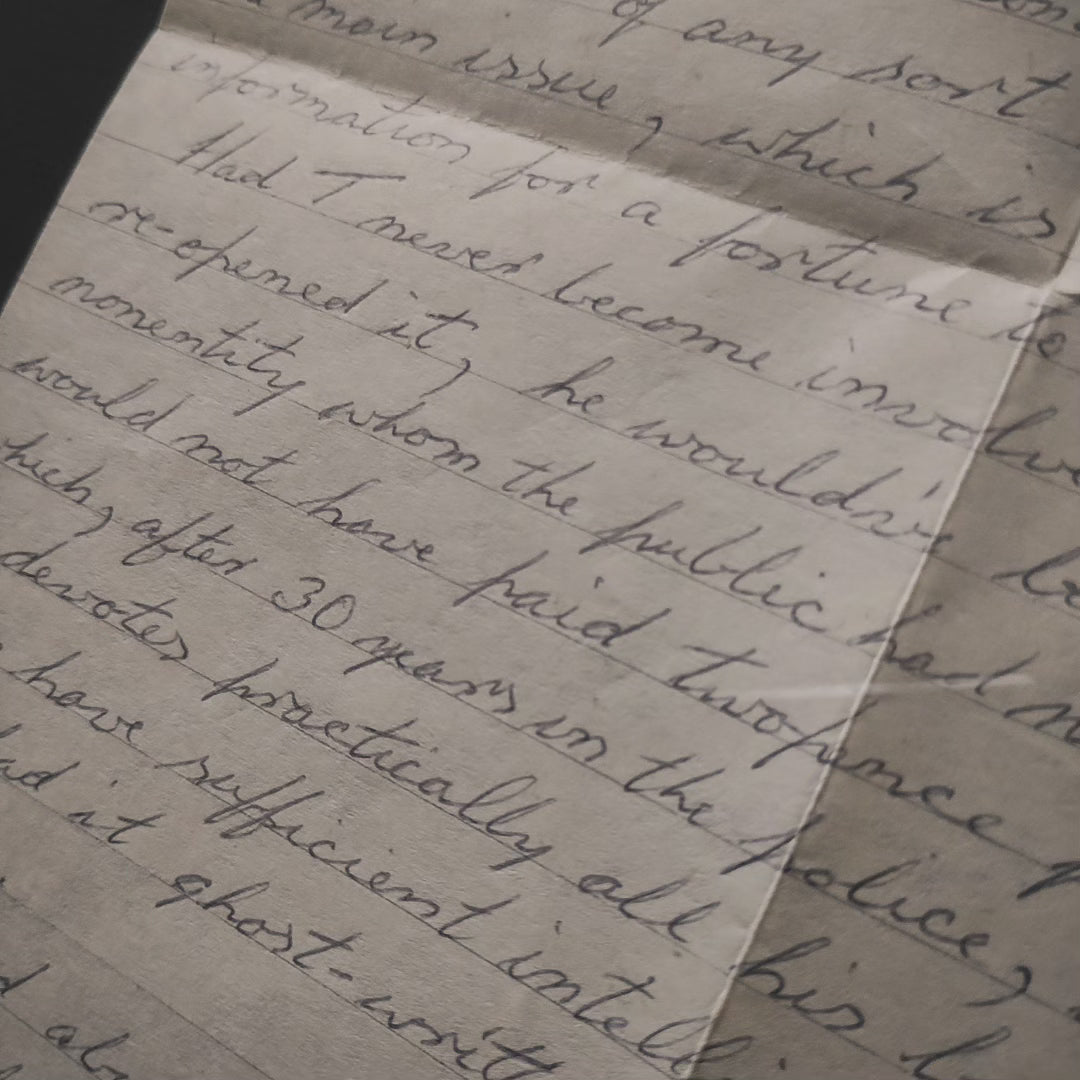 of any sort
main issue, which is
information for a fortune to
Had T never become involve
re-opened it, he would've be
nonentity whom the public had n
would not have paid twopence
hich, after 30 years in the police,
devotes practically all his l
have sufficient intelli
ad it ghost-writt